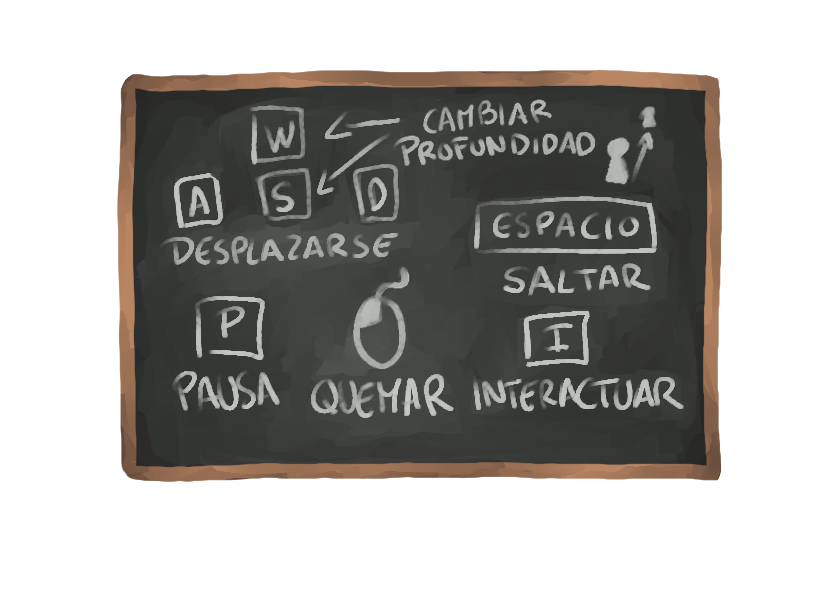 W
CAMBIAR
PROFUNDIDAD
A S D
DESPLAZARSE
ESPACIO
SALTAR
P
I
PAUSA
QUEMAR
INTERACTUAR